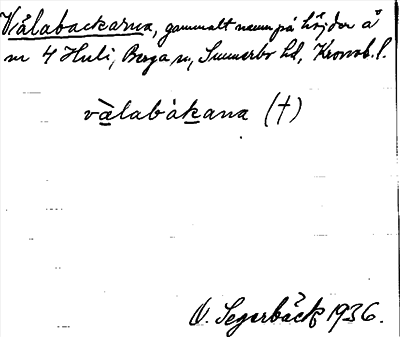 Vålabackarna, gammalt namn på höjder å
nr 4 Huli, Berga sn, Sunnerbo hd, Kronob. l.
vàlabákana (†)
O. Segerbäck 1936.